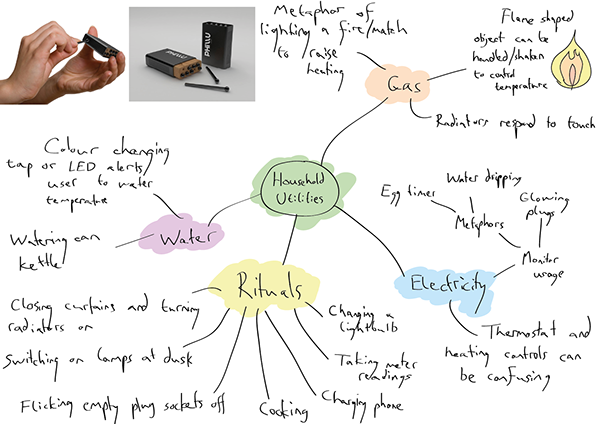 Metaphor of
lighting a fire/match
to raise
heating
Flame shaped
object can be
handled/shaken
to control
temperature
Gas
Radiators respond to touch
Colour changing
tap or LED alerts
user to water
temperature
Household
Utilities
Water dripping
Egg timer
Metaphors
Glowing
plugs
Monitor
usage
Watering can
kettle
Water
Electricity
Rituals
Closing curtains and turning
radiators on
Changing a
lightbulb
Thermostat and
heating controls can
be confusing
Switching on lamps at dusk
Taking meter
readings
Flicking empty plug sockets off
Cooking
Charging phone